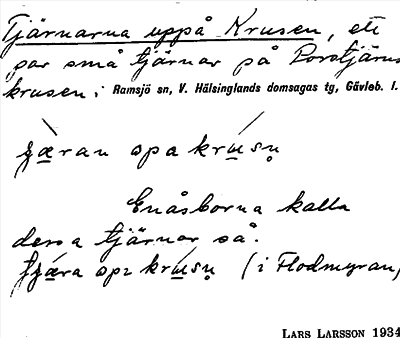 Tjärnarna uppå Krusen, ett
par små tjärnar på Porstjärns
krusen. Ramsjö sn, V. Hälsinglands domsagas tg, Gävleb. l.
opa krúsn̥
Enåsborna kalla
dessa tjärnar så.
krúsn̥ (i Flodmyran)
LARS LARSSON 1934